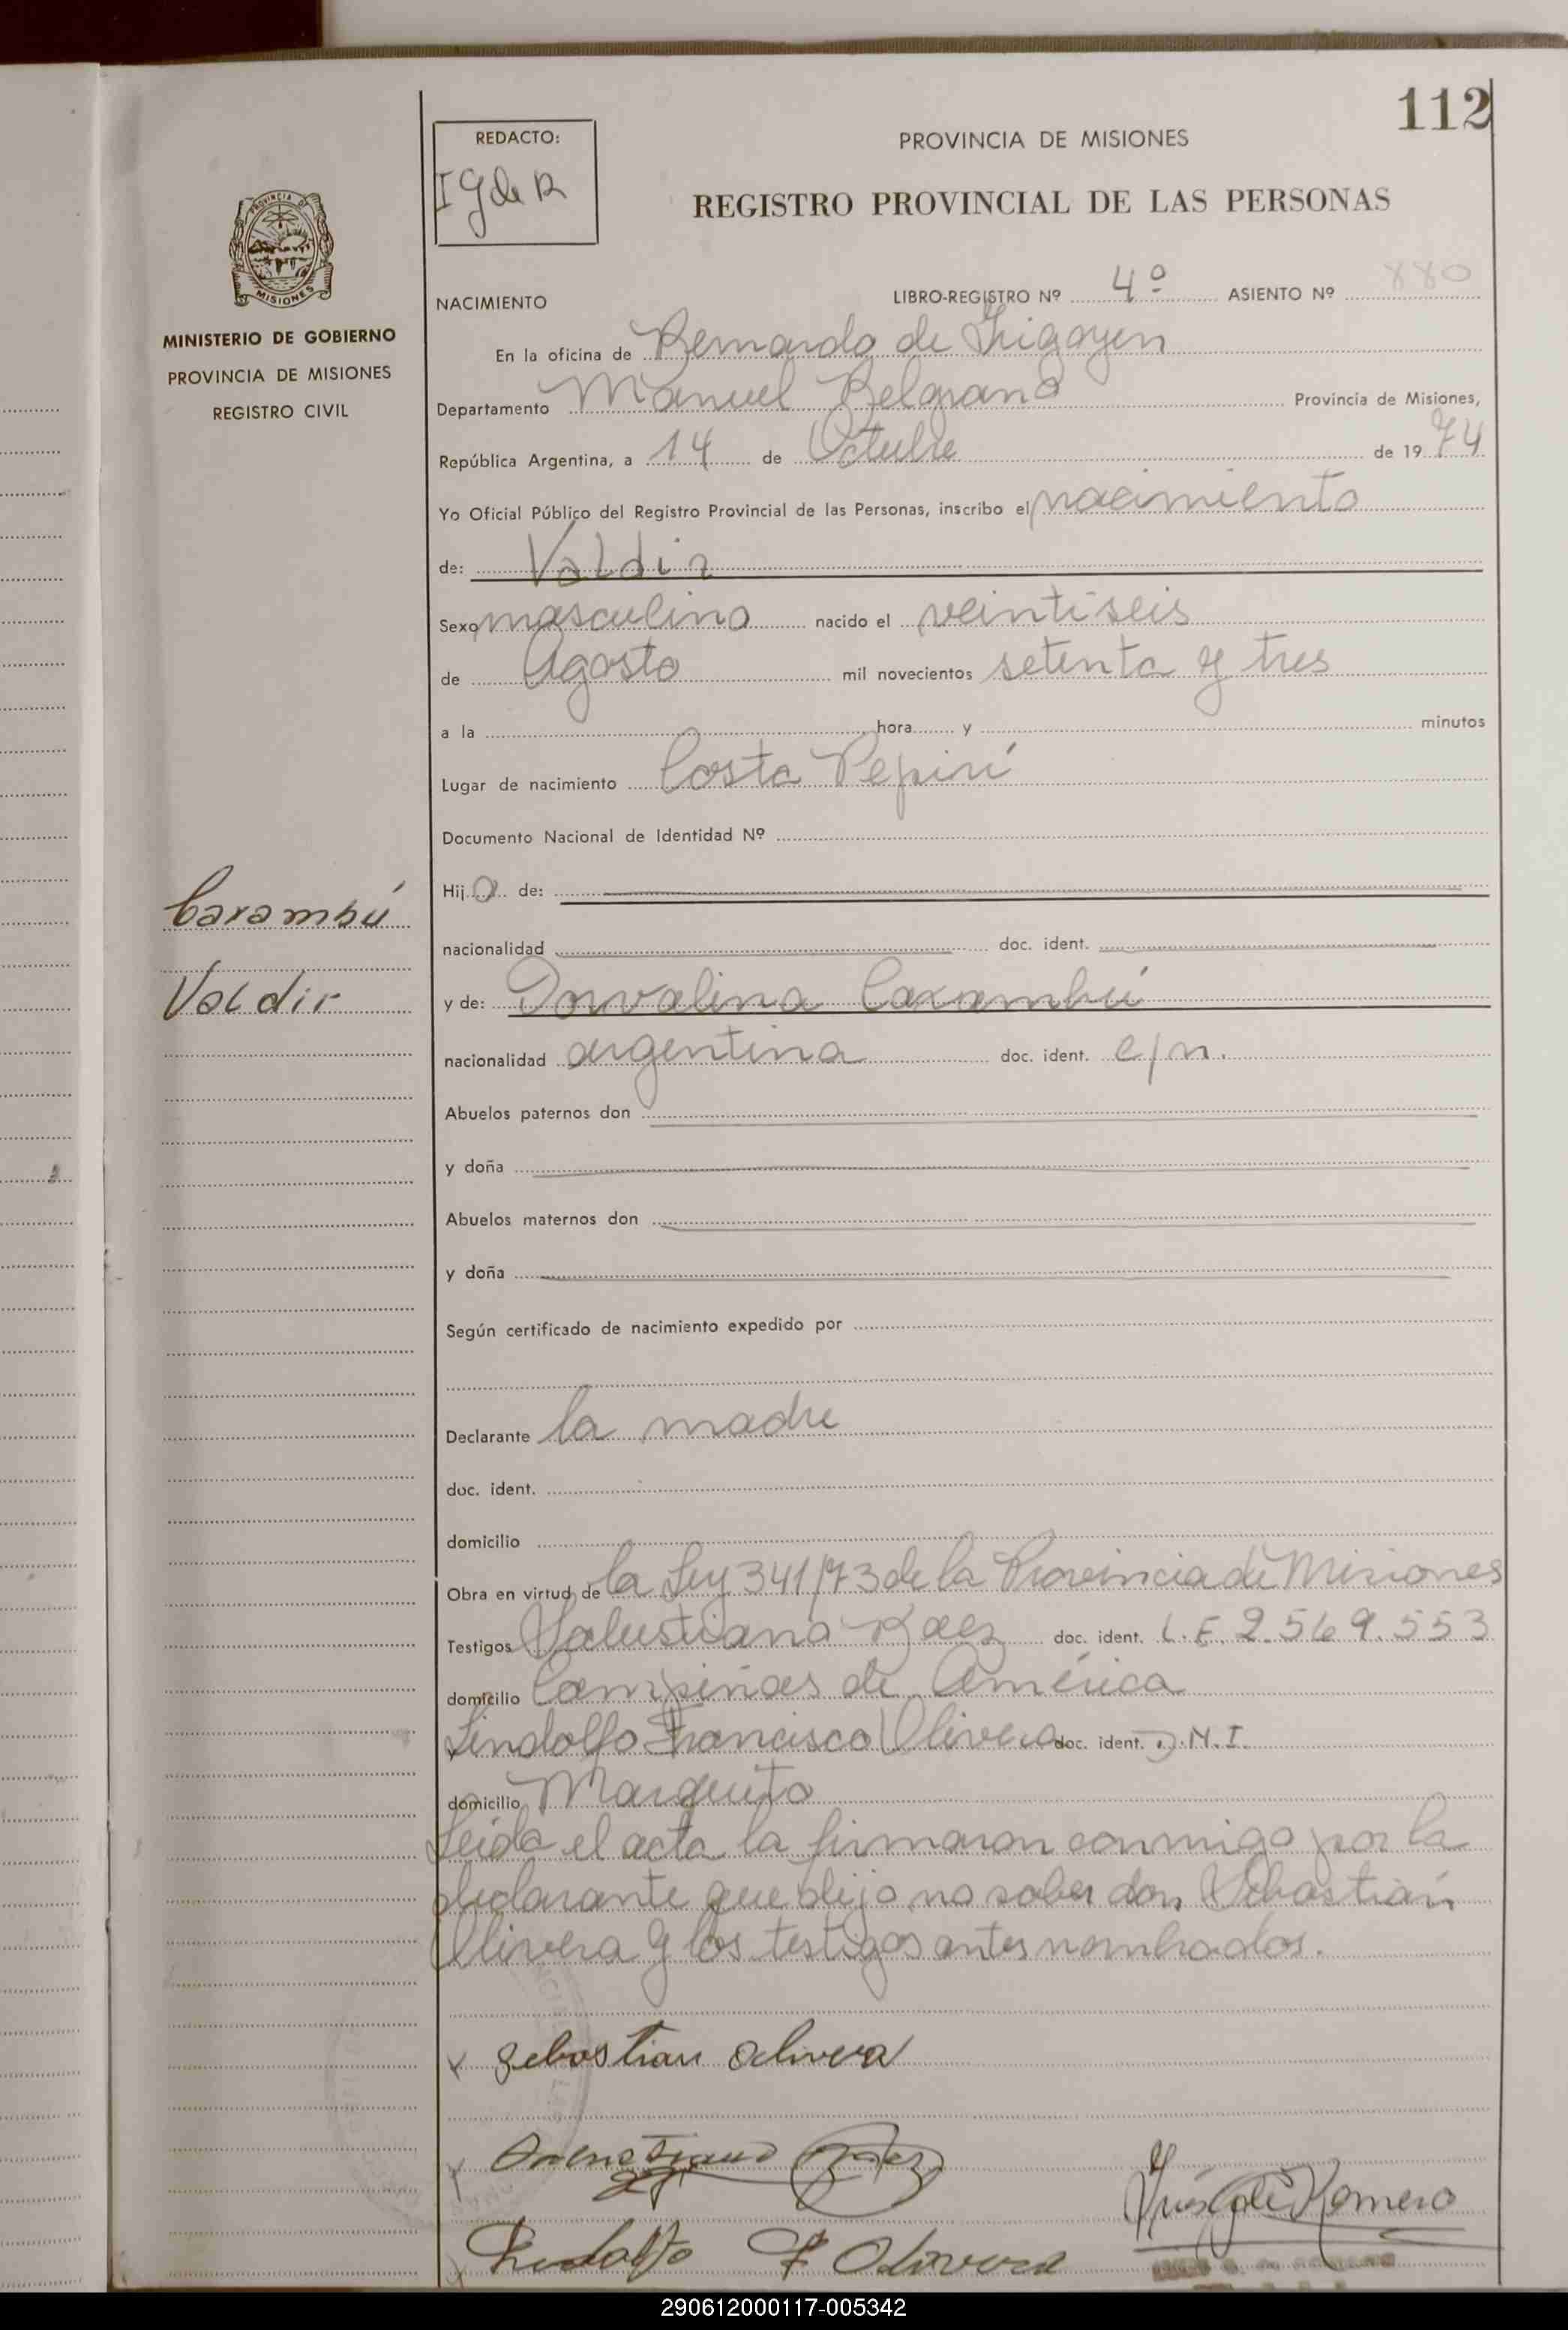 112
REDACTO:
I G de R
PROVINCIA DE MISIONES
REGISTRO PROVINCIAL DE LAS PERSONAS
MISIONES
MINISTERIO DE GOBIERNO
PROVINCIA DE MISIONES
REGISTRO CIVIL
NACIMIENTO LIBRO-REGISTRO Nº 4º ASIENTO Nº 880
En la oficina de Bernardo de Irigoyen
Departamento Manuel Belgrano Provincia de Misiones,
República Argentina, a 14 de Octubre de 1974
Yo Oficial Público del Registro Provincial de las Personas, inscribo el nacimiento
de: Valdir
Sexo masculino nacido el veintiseis
de Agosto mil novecientos setenta y tres
a la hora y minutos
Lugar de nacimiento Costa Pepirí
Documento Nacional de Identidad Nº
Hijo de:
Caxambú
nacionalidad doc. ident.
Valdir
y de: Dorvalina Caxambú
nacionalidad argentina doc. ident. c/n.
Abuelos paternos don
y doña
Abuelos maternos don
y doña
Según certificado de nacimiento expedido por
Declarante la madre
doc. ident.
domicilio
Obra en virtud de la Ley 341/73 de la Provincia de Misiones
Testigos Salustiano Baez doc. ident. L.E. 2.569.553
domicilio Campiñas de América
Lindolfo Francisco Olivera doc. ident. D.N.I.
domicilio
Leída el acta la firmaron conmigo por la
declarante que dijo no saber don Sebastián
Olivera y los testigos antes nombrados.
Sebastian Olivera
Baez
F Olivera
Romero
290612000117-005342